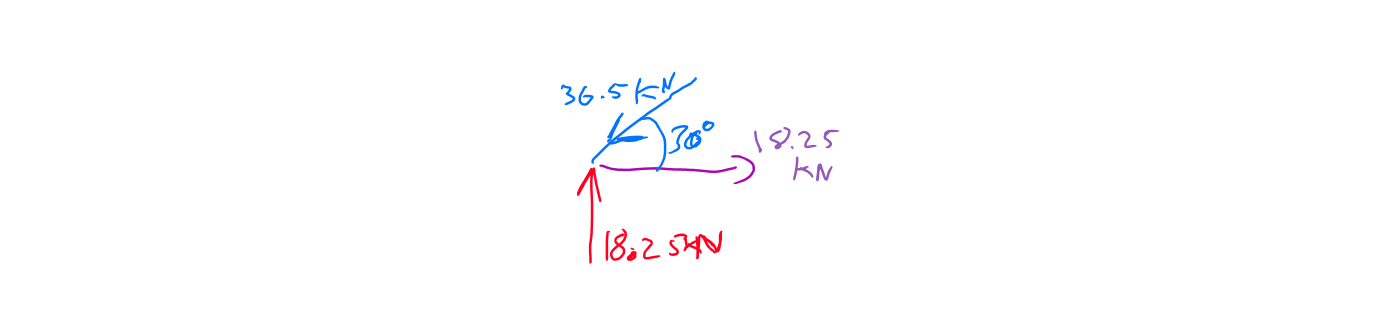 36.5 kN
30°
18.25
kN
18.25kN